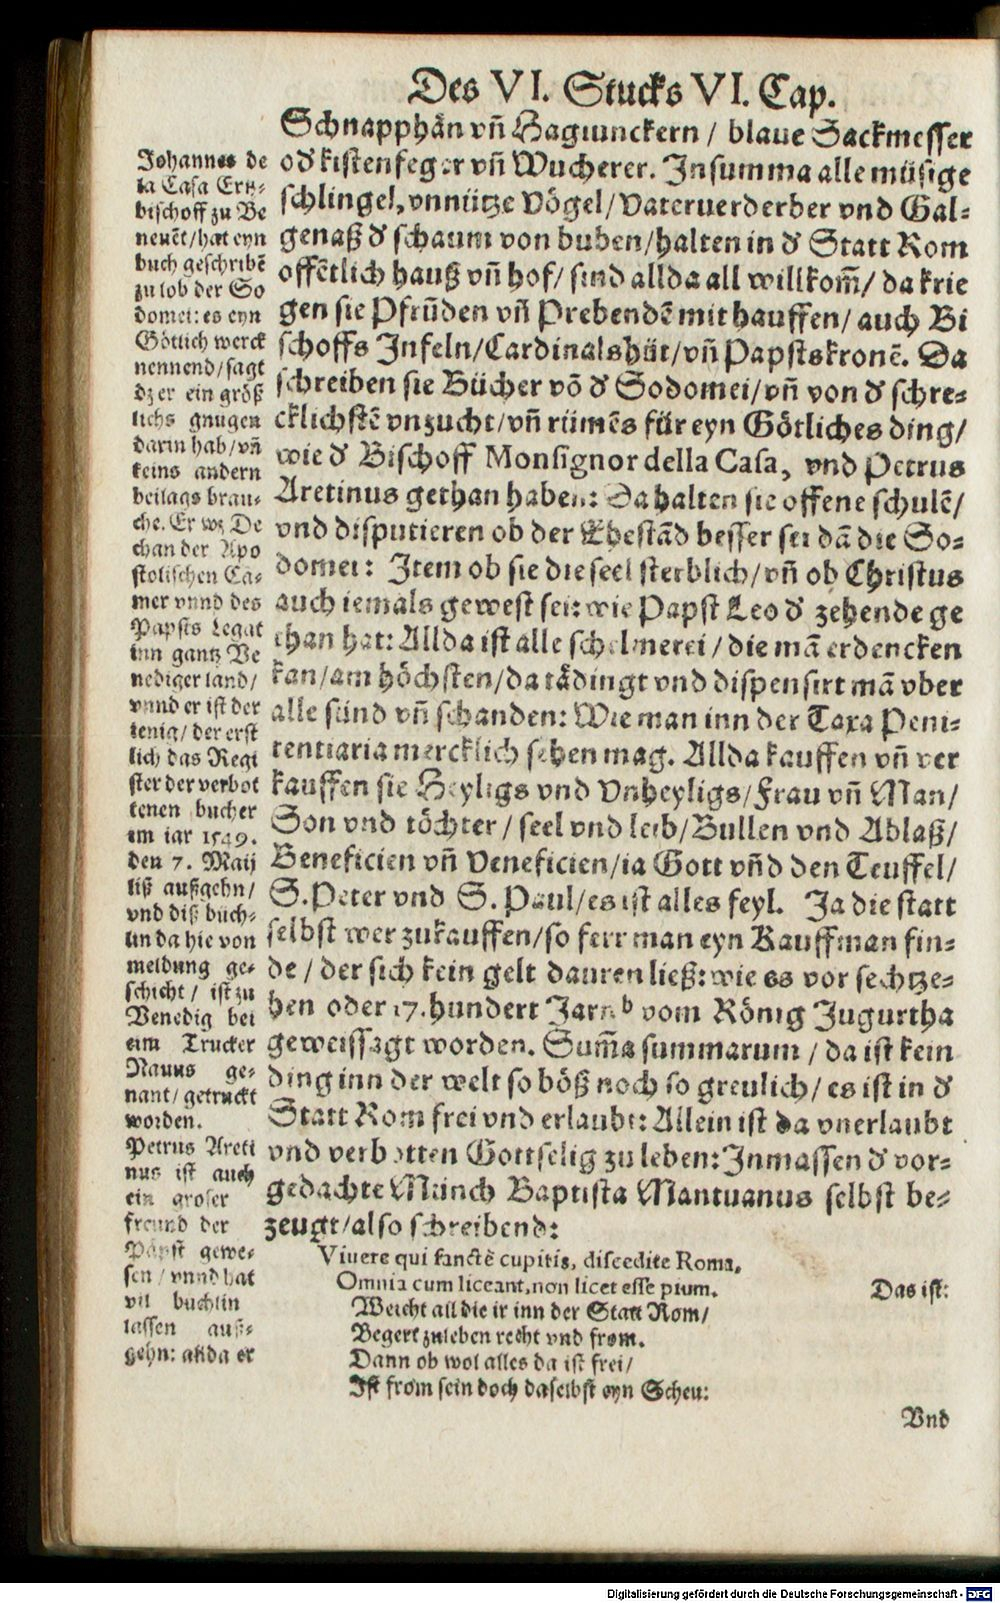 Des VI. Stucks VI. Cap.
Schnapphän vñ Hagwnckern / blaue Sackmesser
od' kistenfeger vñ Wucherer. Insumma alle müsige
schlingel, vnnütze Vögel/Vateruerderber vnd Gal-
genaß d' schaum von buben/halten in d' Statt Rom
offẽtlich hauß vñ hof/ sind allda all willkom̃/ da krie
gen sie Pfrũden vñ Prebendẽ mit hauffen/ auch Bi
schoffs Infeln/Cardinalshüt/vñ Papstskronẽ. Da
schreiben sie Bücher võ d' Sodomei/vñ von d' schre-
cklichstẽ vnzucht/vñ rümẽs für eyn Götliches ding/
wie d' Bischoff Monsignor della Casa, vnd Petrus
Aretinus gethan haben: Da halten sie offene schulẽ/
vnd disputieren ob der Ehestãd besser sei dã die So-
domei: Item ob sie die seel sterblich/vñ ob Christus
auch iemals gewest sei: wie Papst Leo d' zehende ge
than hat: Allda ist alle schelmerei / die mã erdencken
kan/am höchsten/da tädingt vnd dispensirt mã vber
alle sünd vñ schanden: Wie man inn der Taxa Peni-
tentiaria mercklich sehen mag. Allda kauffen vñ ver
kauffen sie Heyligs vnd Vnheyligs/Frau vñ Man/
Son vnd töchter / seel vnd leib/Bullen vnd Ablaß/
Beneficien vñ Veneficien/ia Gott vñd den Teuffel/
S. Peter vnd S. Paul/es ist alles feyl. Ja die statt
selbst wer zukauffen/so ferr man eyn Kauffman fin-
de / der sich kein gelt dauren ließ: wie es vor sechtze-
hen oder 17. hundert Jarn b vom König Jugurtha
geweissagt worden. Sum̃a summarum / da ist kein
ding inn der welt so böß noch so greulich/ es ist in d'
Statt Rom frei vnd erlaubt: Allein ist da vnerlaubt
vnd verbotten Gottselig zu leben: Inmassen d' vor-
gedachte Münch Baptista Mantuanus selbst be-
zeugt/also schreibend:
Viuere qui sanctè cupitis, discedite Roma,
Omnia cum liceant, non licet esse pium. Das ist:
Weicht all die ir inn der Statt Rom/
Begert zuleben recht vnd from.
Dann ob wol alles da ist frei/
Ist from sein doch daselbst eyn Scheu:
Vnd
Johannes de
la Casa Ertz-
bischoff zu Be
neuẽt/hat eyn
buch geschribẽ
zu lob der So
domei: es eyn
Götlich werck
nennend/sagt
dz er ein größ
lichs gnugen
darin hab/vñ
keins andern
beilags brau-
che. Er wz De
chan der Apo
stolischen Ca-
mer vnnd des
Papsts Legat
inn gantz Ve
nediger land/
vnnd er ist der
ienig/ der erst
lich das Regi
ster der verbot
tenen bucher
im iar 1549.
den 7. Maij
liß außgehn/
vnd diß büch-
lin da hie von
meldung ge-
schicht / ist zu
Venedig bei
eim Trucker
Nauus ge-
nant/getruckt
worden.
Petrus Areti
nus ist auch
ein groser
freund der
Päpst gewe-
sen / vnnd hat
vil buchlin
lassen auß-
gehn: alda er
Digitalisierung gefördert durch die Deutsche Forschungsgemeinschaft - DFG